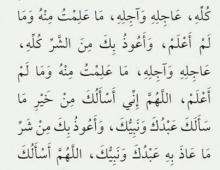 كُلِّهِ، عَاجِلِهِ وَآجِلِهِ، مَا عَلِمْتُ مِنْهُ وَمَا
لَمْ أَعْلَمْ، وَأَعُوذُ بِكَ مِنَ الشَّرِّ كُلِّهِ،
عَاجِلِهِ وَآجِلِهِ، مَا عَلِمْتُ مِنْهُ وَمَا لَمْ
أَعْلَمْ، اللَّهُمَّ إِنِّي أَسْأَلُكَ مِنْ خَيْرِ مَا
سَأَلَكَ عَبْدُكَ وَنَبِيُّكَ، وَأَعُوذُ بِكَ مِنْ شَرِّ
مَا عَاذَ بِهِ عَبْدُكَ وَنَبِيُّكَ، اللَّهُمَّ أَسْأَلُكَ